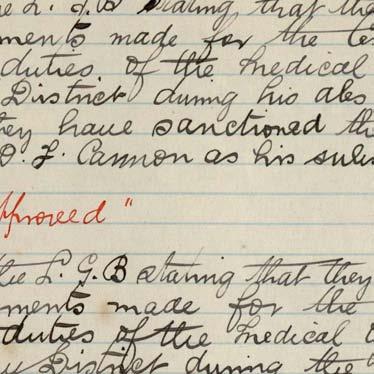 L. G. B stating that the
ments made for the te
duties of the Medical
District during his abs
they have sanctioned the
D. F. Cannon as his subs
Approved"
the L. G. B stating that they
ments made for the
duties of the Medical O
District during the